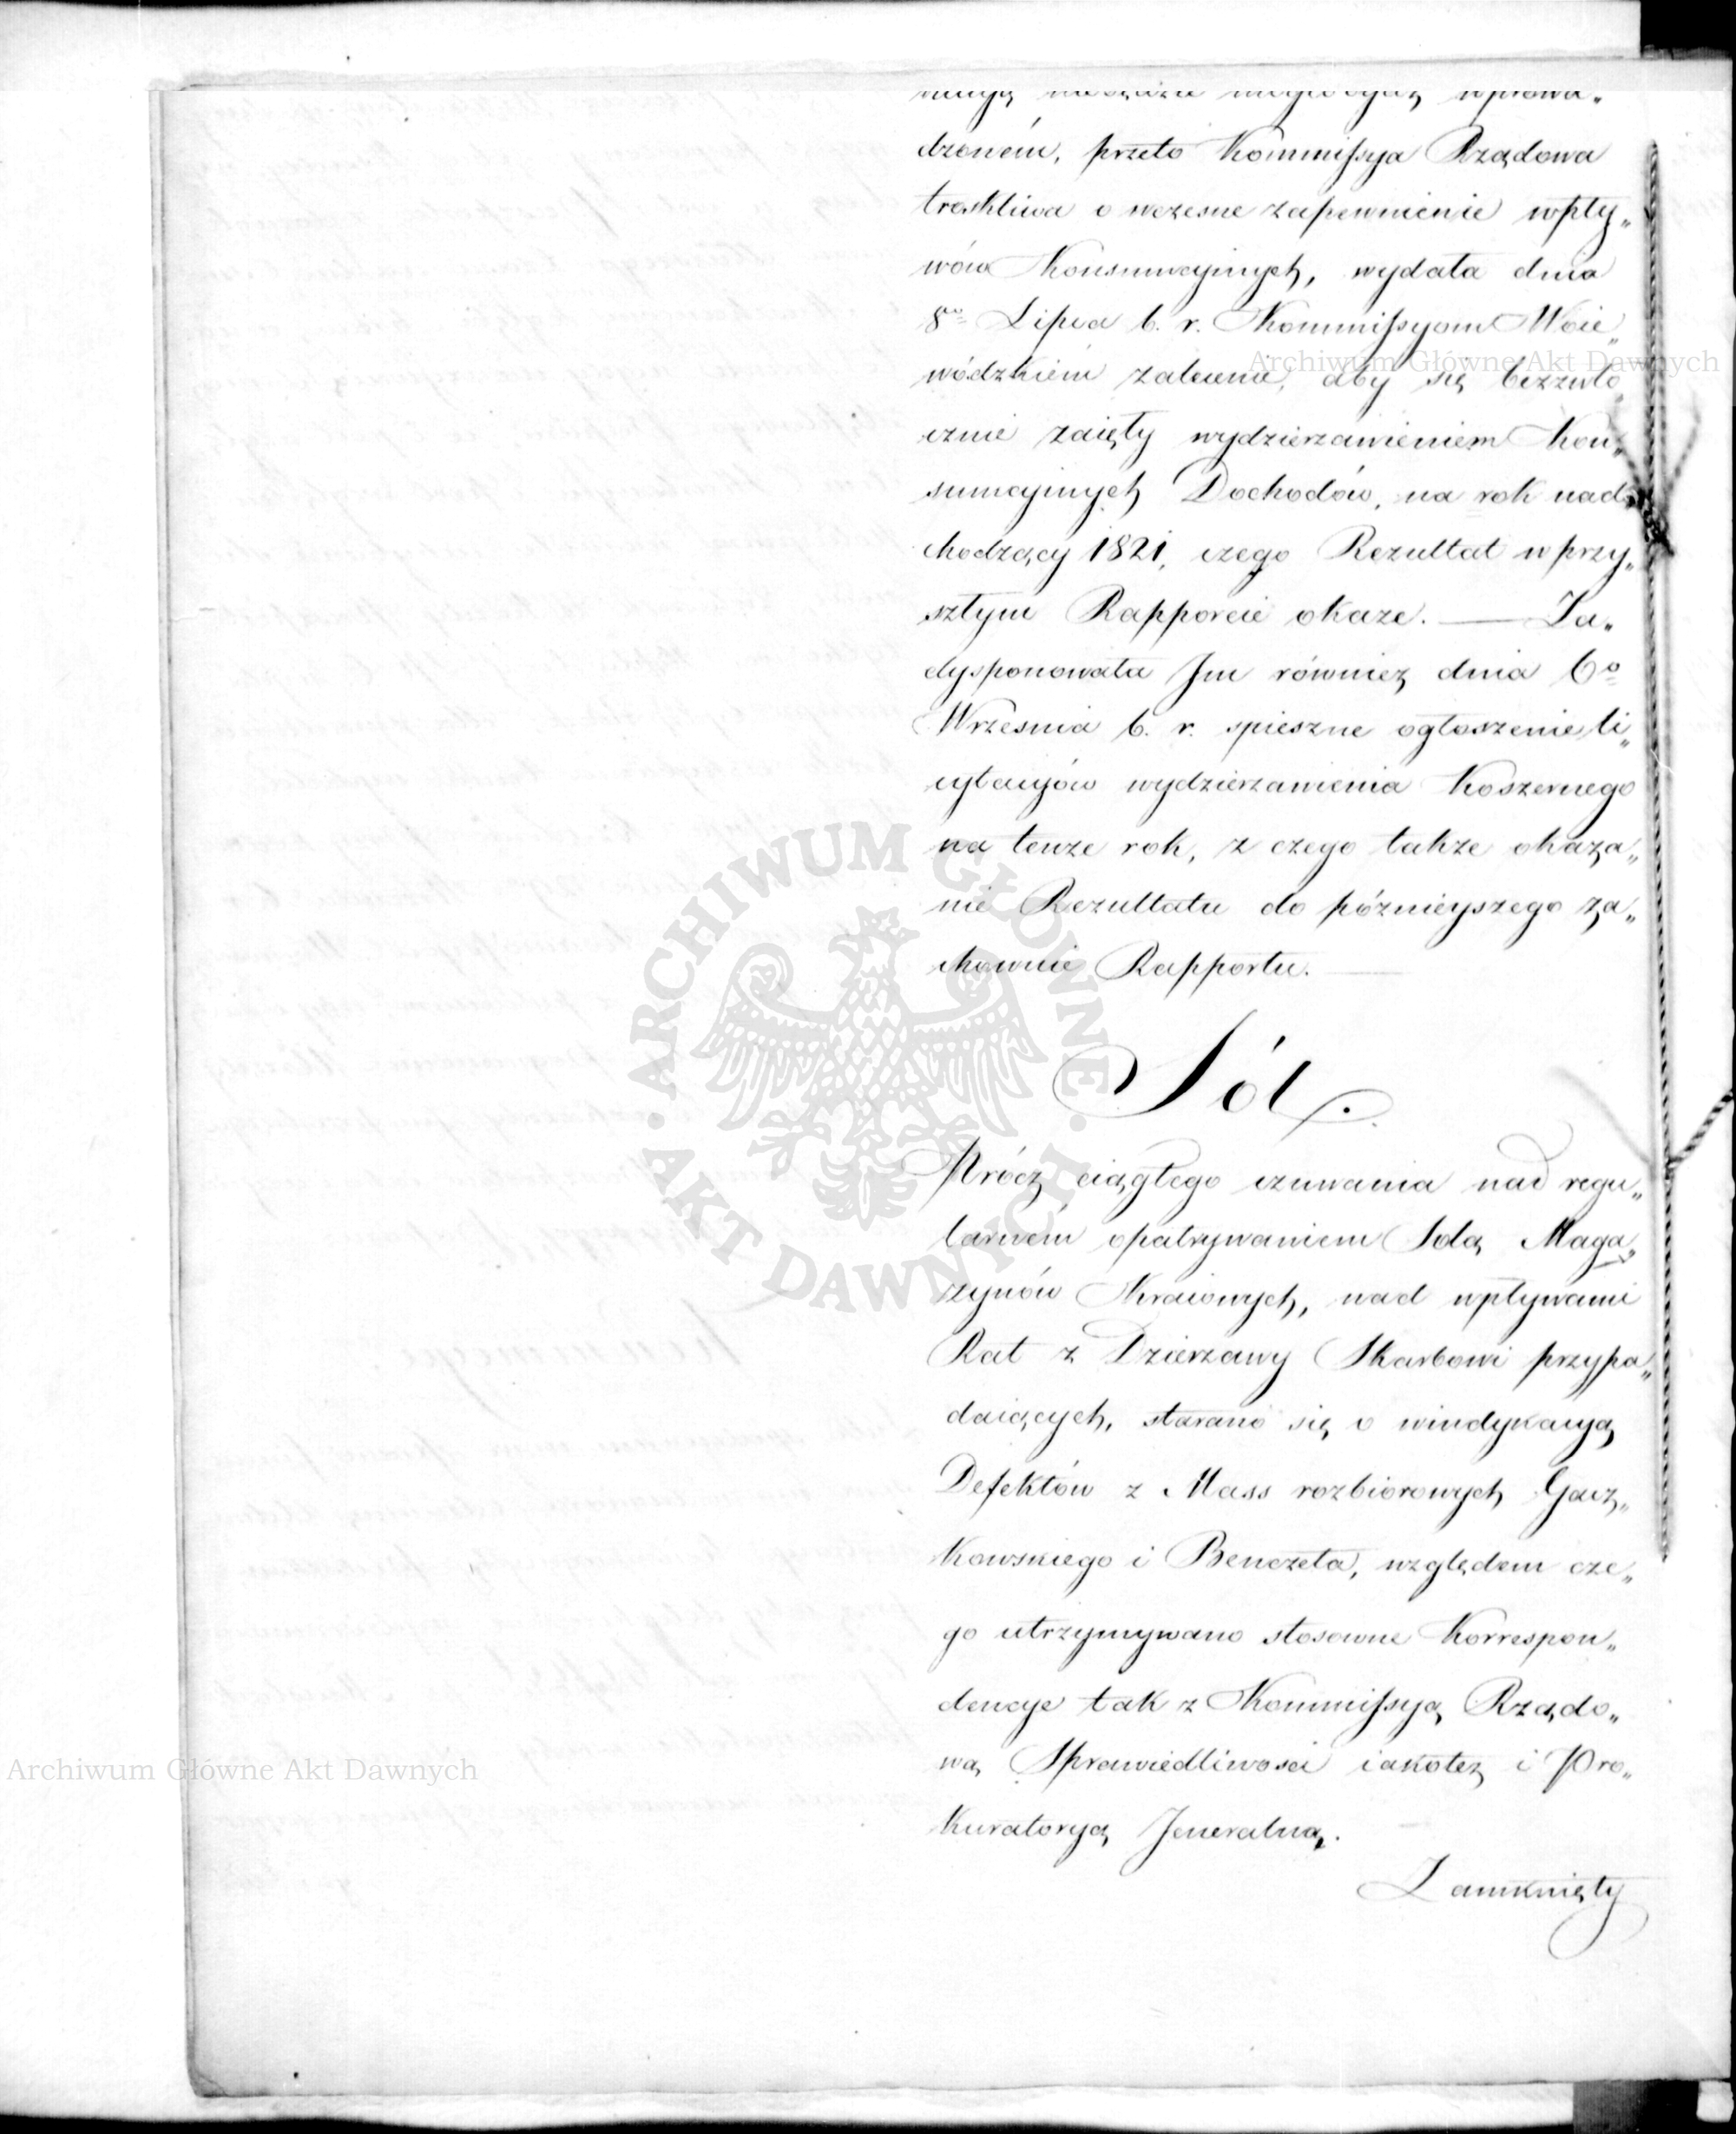 wprowa„
dzonem, przeto Kommissya Rządowa
troskliwa o wczesne zapewnienie wpły„
wów Konsumcyjnych, wydała dnia
8º Lipca b. r. Kommissyom Woie„
wódzkiem zalecenie, aby się bezzwło„
cznie zaięły wydzierzawieniem Kon„
sumcyjnych Dochodów, na rok nad„
chodzący 1821, czego Rezultat w przy„
szłym Rapporcie okaze. — Za„
dysponowała Jm równiez dnia 6º
Wrzesnia b. r. spieszne ogłoszenie li„
cytacyjów wydzierzawienia Koszernego
na tenze rok, z czego takze okaza„
nie Rezultatu do póznieyszego za„
chowuie Rapportu. —
Sól.
Prócz ciągłego czuwania nad regu„
larnem opatrywaniem Solą Maga„
zynów Kraiowych, nad wpływami
Rat z Dzierzawy Skarbowi przypa„
daiących, starano się o windykacyą
Defektów z Mass rozbiorowych Gacz„
kowskiego i Benczeta, względem cze„
go utrzymywano stosowne Korrespon„
dencye tak z Kommissyą Rządo„
wą Sprawiedliwosci iakotez i Pro„
kuratoryą Jeneralną.
Zamknięty
Archiwum Główne Akt Dawnych
ARCHIWUM GŁÓWNE • AKT DAWNYCH •
Archiwum Główne Akt Dawnych